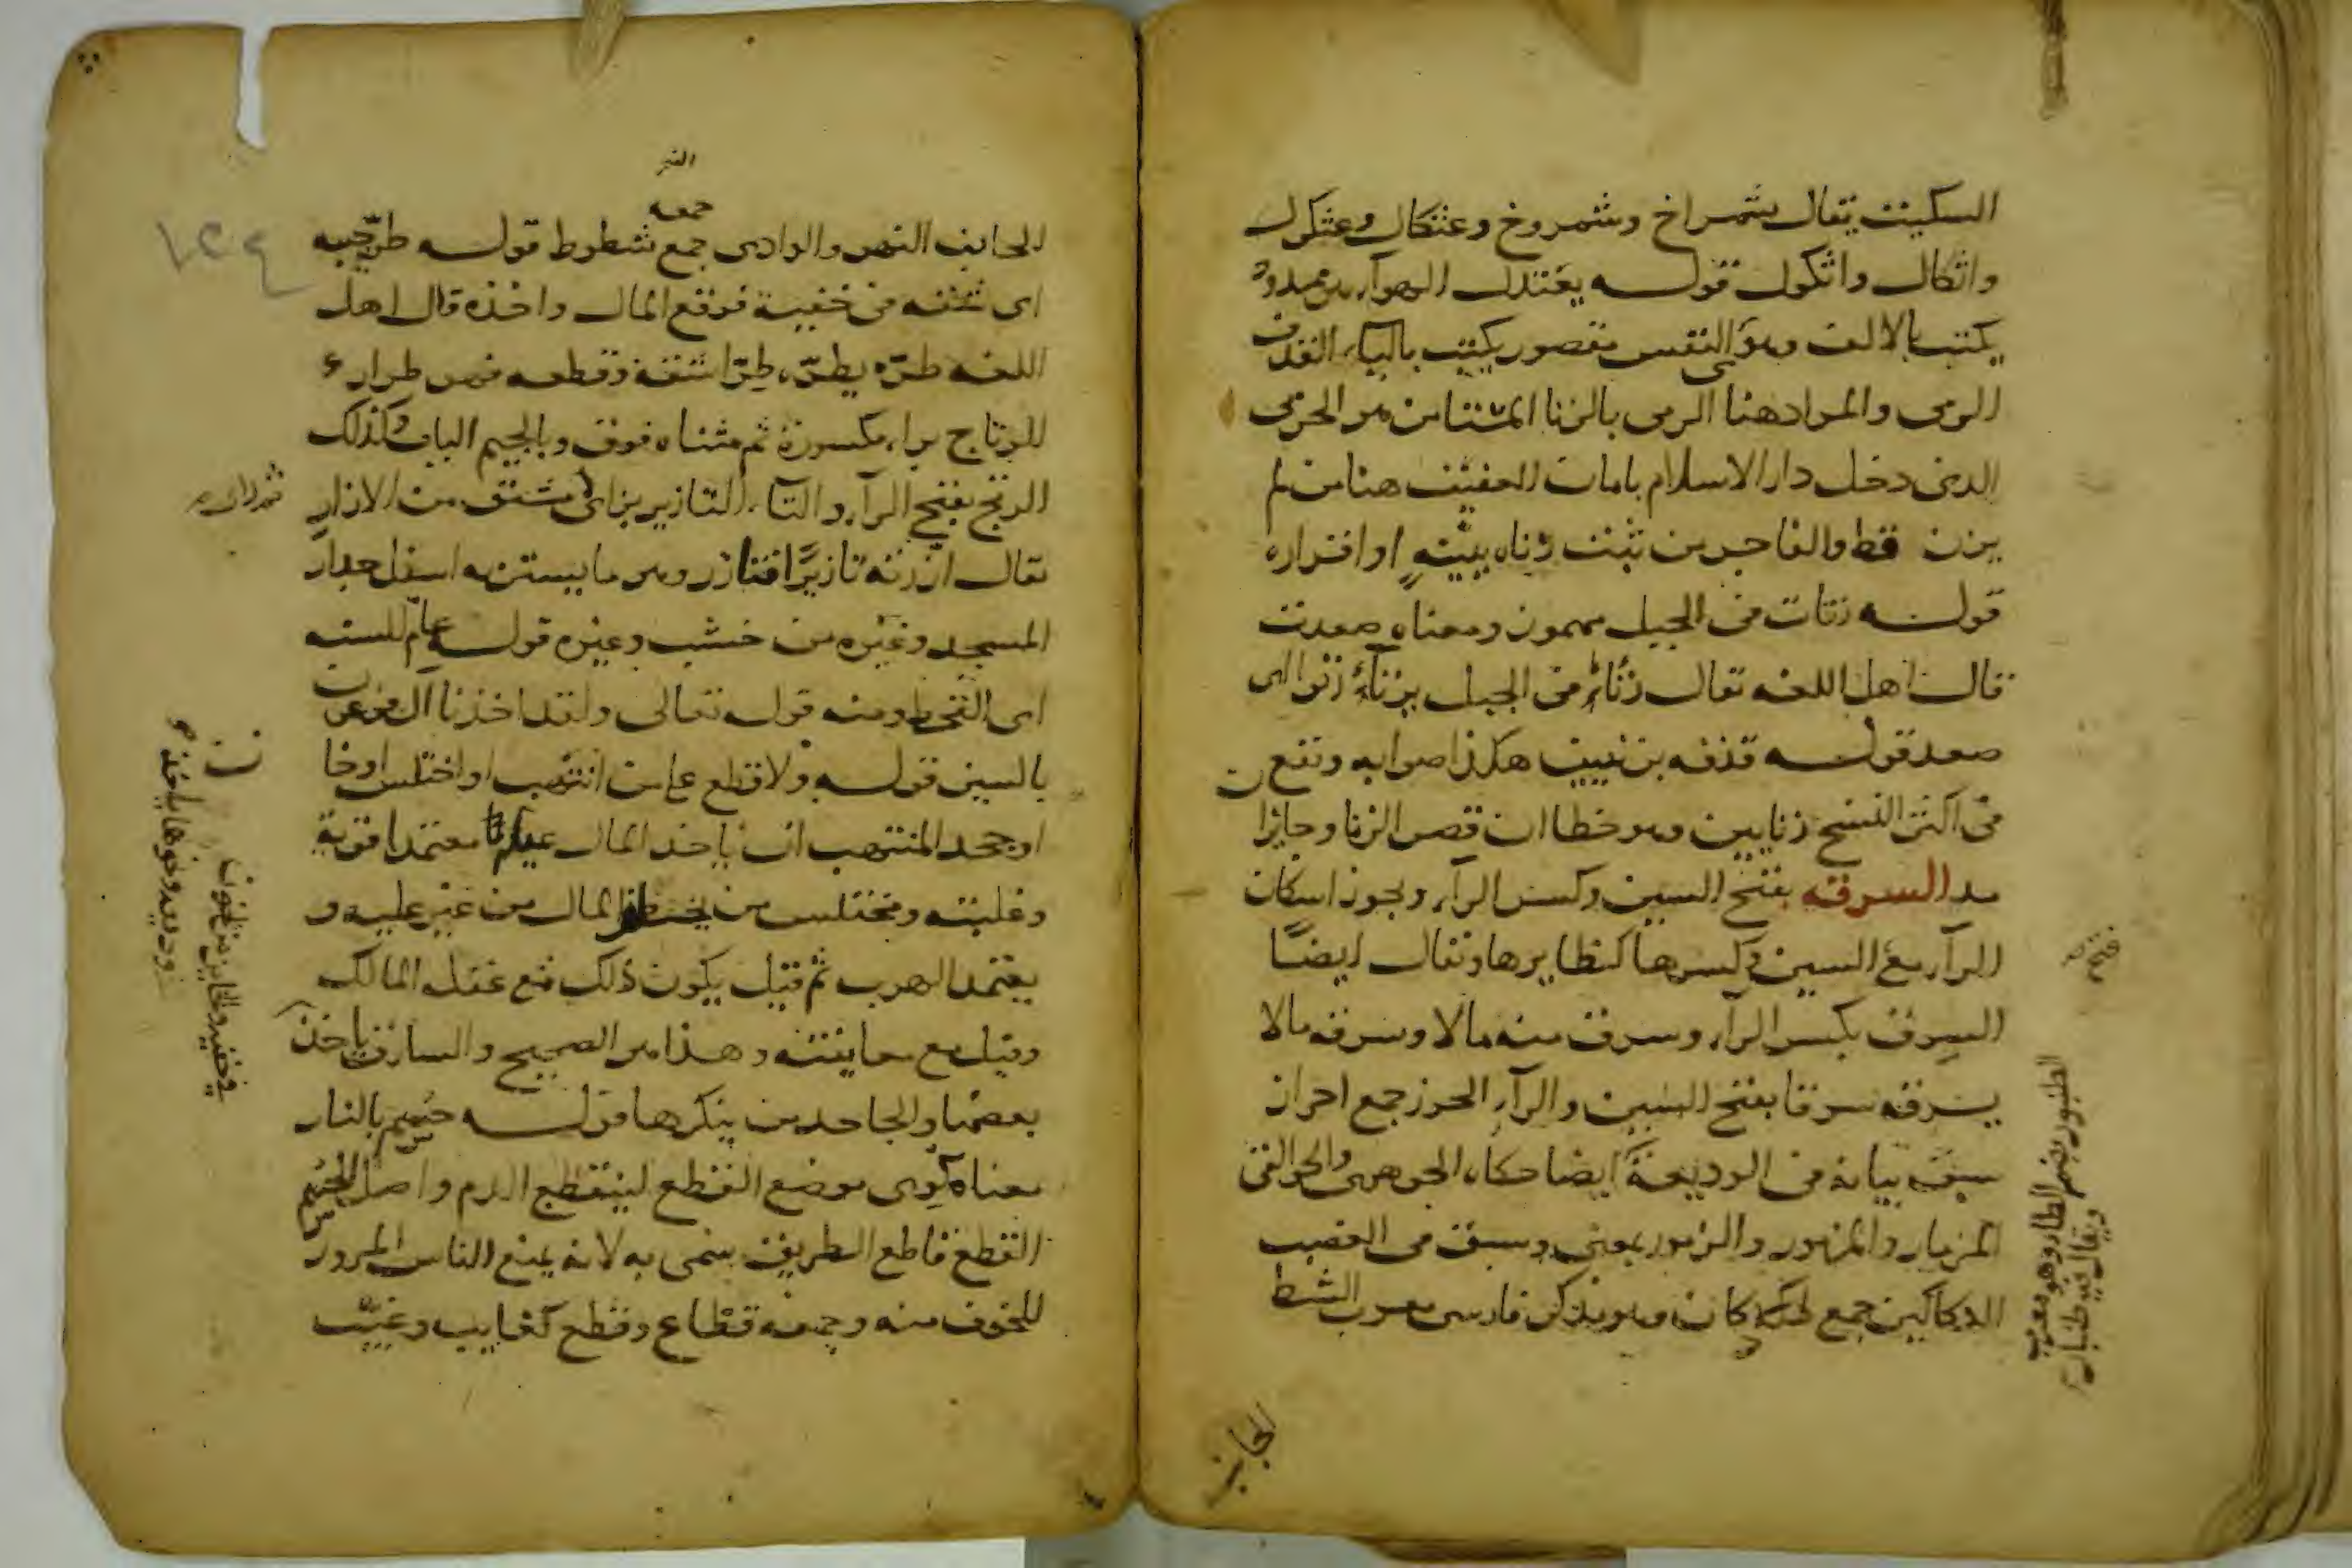 السكيت يقال شمراخ وشمروخ وعثكال وعثكول
واثكال واثكول قوله يعتدل الهوآء ممدود
يكتب بالالف وهوى النفس مقصور يكتب بالياء القذف
الرمي والمراد هنا الرمي بالزنا المستامن هو الحربي
الذي دخل دار الاسلام بامان العفيف هنا من لم
يزن قط والفاجر من ثبت زناه ببينة او اقراره
قوله زنات في الجبل مهموز ومعناه صعدت
قال اهل اللغه يقال زنأ في الجبل يزنأ زنوا اي
صعد قوله قذفه بزنيين هكذا صوابه وتقع
في اكثر النسخ زنايين وهو خطا ان قصر الزنا وجايز ان
مد السرقه بفتح السين وكسر الرآء ويجوز اسكان
الرآء مع السين وكسرها كنظايرها ويقال ايضا
السرق بكسر الرآء وسرق منه مالا وسرقه مالا
يسرقه سرقا بفتح السين والرآء الحرز جمع احراز
سبق بيانه في الوديعة ايضا حكاه الجوهري والجواليقي
المزمار والمزمور والزمور بمعنى وسبق في الغصب
الدكاكين جمع دكان وهو مذكر فارسي معرب الشط
فتح
الطنبور بضم الطاء وهو معرب
ويقال فيه طنبار
الجانب
النهر
جمعه
الجانب النهر والوادي جمع شطوط قوله طر جيبه
اي شقه في خفية فوقع المال واخذه قال اهل
اللغه طره يطره طرا شقه وقطعه فهو طرار
الرتاج براء مكسورة ثم مثناه فوق وبالجيم الباب وكذلك
الرتج بفتح الرآء والتاء التازير بزاي مشتق من الازار
يقال ازرته تازيرا فتازر وهو ما يستر به اسفل جدار
المسجد وغيره من خشب وغيره قوله عام السنه
اي القحط ومنه قوله تعالى ولقد اخذنا آل فرعون
بالسنين قوله ولا قطع على من انتهب او اختلس او خان
او جحد المنتهب ان ياخذ المال عيانا معتمدا قوته
وغلبته ومختلس من يختطف المال من غير غلبه و
يعتمد الهرب ثم قيل يكون ذلك مع غفله المالك
وقيل مع معاينته وهذا هو الصحيح والسارق ياخذ
بعضها والجاحد من ينكرها قوله حسم بالنار
معناه كوى موضع القطع لينقطع الدم واصل الحسم
القطع قاطع الطريق سمي به لانه يمنع الناس المرور
للخوف منه وجمعه قطاع وقطع كغايب وغيب
في خفيه والخاين من يخون
وديعه ونحوها ياخذ
١٢٤